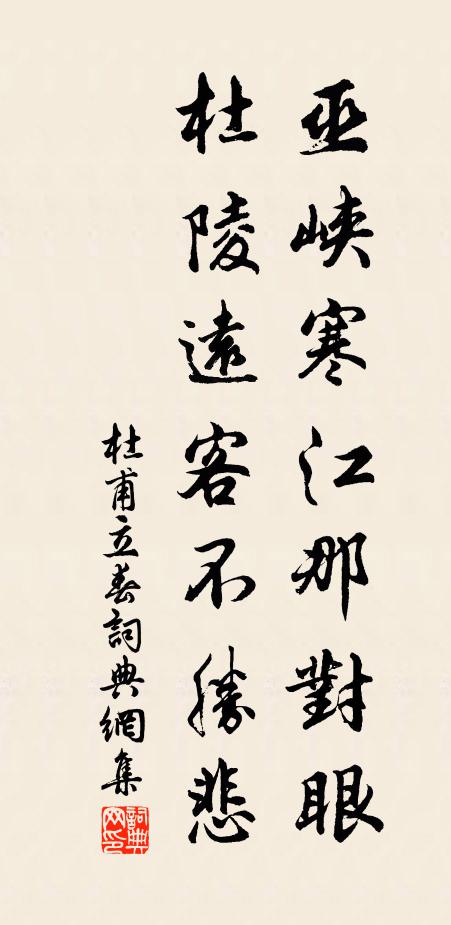 巫峽寒江那對眼
杜陵遠客不勝悲
杜甫立春詞典網集
詞典网印